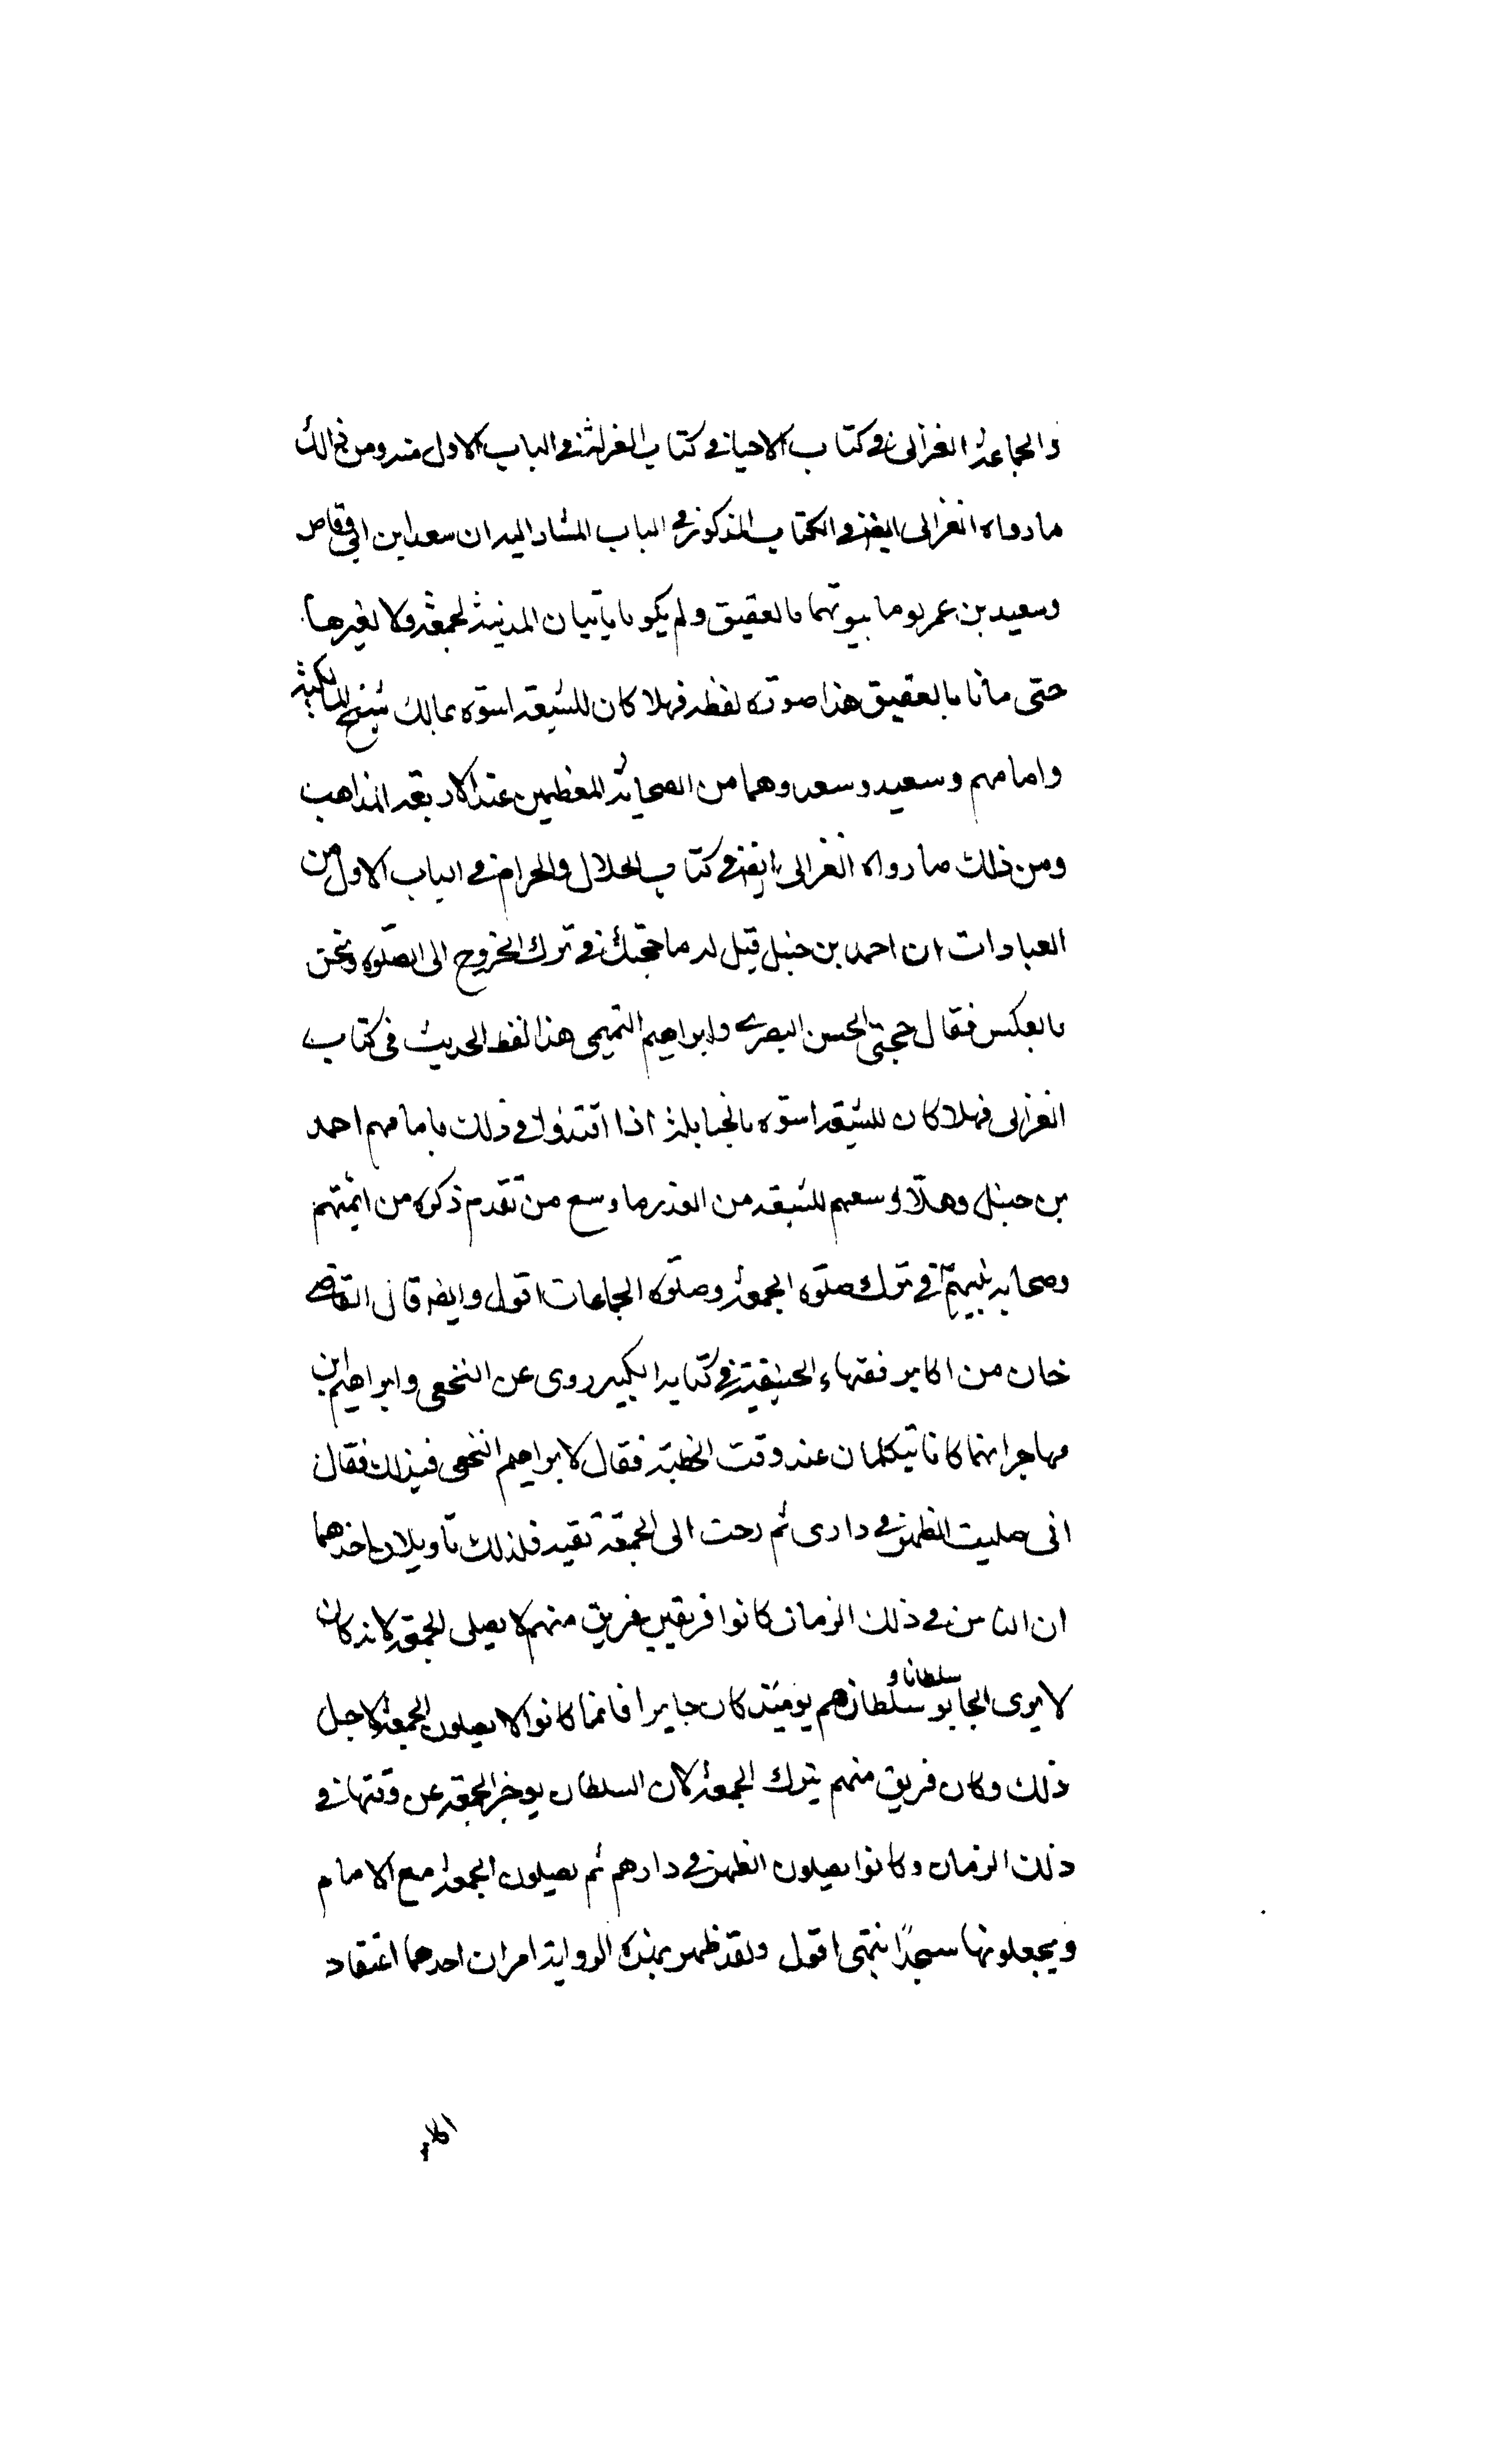 والجماعة الغزالى فى كتاب الاحيا فى كتاب العزلة فى الباب الاول منه ومن ذالك
ما رواه الغزالى ايضا فى الكتاب المذكور فى الباب المشار اليه ان سعد ابن ابى وقاص
وسعيد بن عمر لوما بيوتهما بالعقيق ولم يكونا يأتيان المدينة لجمعة ولا لغيرها
حتى ماتا بالعقيق هذا صورة لفظه فهلا كان للشيعة اسوة بمالك شيخ المالكية
وامامهم وسعيد وسعد وهما من الصحابة المعظمين عند الاربعة المذاهب
ومن ذلك ما رواه الغزالى ايضا فى كتاب الحلال والحرام فى الباب الاول من
العبادات ان احمد بن حنبل قيل له ما حجتك فى ترك الخروج الى الصلوة ونحن
بالعكس فقال حجتى الحسن البصرى وابراهيم التميمى هذا لفظ الحديث فى كتاب
الغزالى فهلا كان للشيعة اسوة بالحنابلة اذا اقتدوا فى ذلك بامامهم احمد
بن حنبل وهلا وسعهم للشيعة من العذر ما وسع من تقدم ذكره من ائمتهم
وصحابة نبيهم فى ترك صلوة الجمعة وصلوة الجماعات اقول وايضا قال القاضى
خان من اكابر فقهاء الحنيفية فى كتابه الكبير روى عن النخعى وابراهيم بن
مهاجر انهما كانا يتكلمان عند وقت الخطبة فقال لابراهيم النخعى فى ذلك فقال
انى صليت الظهر فى دارى ثم رحت الى الجمعة تقية فلذلك تأويلان احدهما
ان الناس فى ذلك الزمان كانوا فريقين فريق منهم لا يصلى الجمعة لانه كان
لا يرى الجابر سلطانا و سلطانهم يومئذ كان جايرا فانما كانوا لا يصلون الجمعة لاجل
ذلك وكان فريق منهم يترك الجمعة لان السلطان يوخر الجمعة عن وقتها فى
ذلك الزمان وكانوا يصلون الظهر فى دارهم ثم يصلون الجمعة مع الامام
ويجعلونها سبحة انتهى اقول ولقد ظهر بهذه الرواية امران احدهما اعتقاد